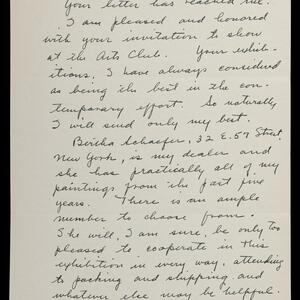 Your letter has reached me.
I am pleased and honored
with your invitation to show
at the Arts Club. Your exhib-
itions, I have always considered
as being the best in the con-
temporary effort. So naturally
I will send only my best.
Bertha Schaefer, 32 E. 57 Street
New York, is my dealer and
she has practically all of my
paintings from the past five
years. There is an ample
number to choose from.
She will, I am sure, be only too
pleased to cooperate in this
exhibition in every way, attending
to packing and shipping and
whatever else may be helpful.